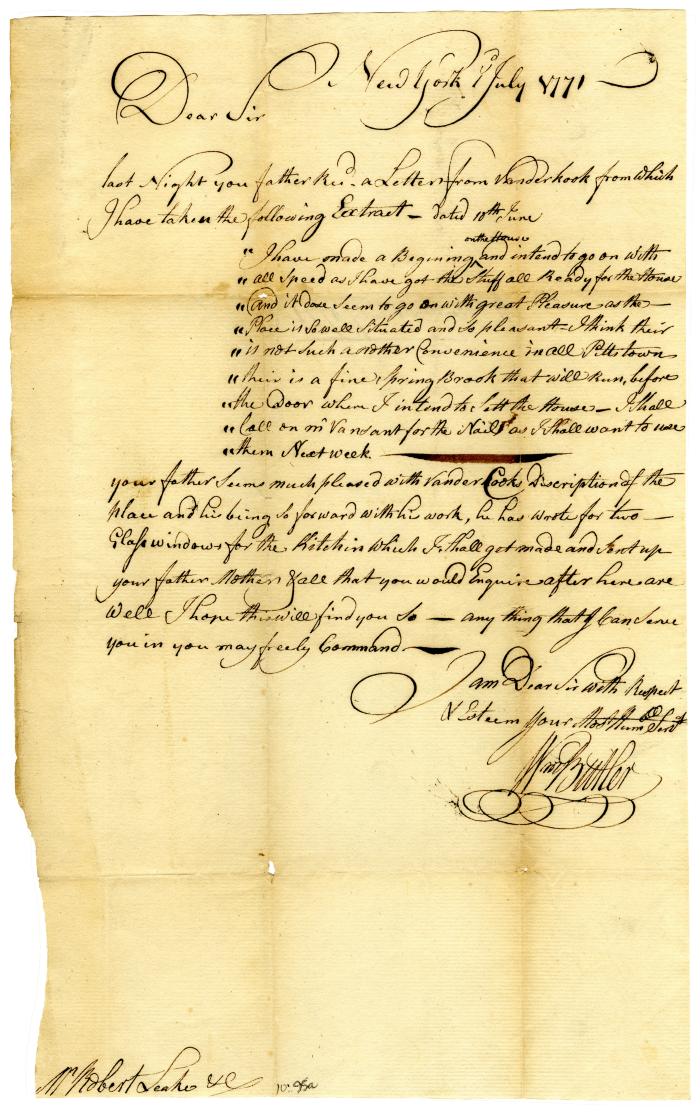 New York 1st July 1771
Dear Sir
last Night you father Recd. a Letter from Vanderkook from which
I have taken the following Extract — dated 18th June
on the House
" I have made a Begining ^ and intend to go on with
" all Speed as I have got the Stuff all Ready for the House
" And it dose Seem to go on with great Pleasure as the —
" Place is So well Situated and So pleasant I think their
" is not Such another Convenience in all Pittstown
" their is a fine Spring Brook that will Run before
" the Door where I intend to Sett the House — I Shall
" Call on Mr Vansant for the Nails as I Shall want to use
" them Next week
your father Seems much pleased with Vander Cooks Discription of the
place and his being So forward with his work, he has wrote for two —
Glass windows for the Kitchin which I Shall got made and Sent up
your father Mother & all that you would Enquire after here are
well I hope this will find you So — any thing that I Can Serve
you in you may freely Command —
I am Dear Sir with Respect
& Esteem Your Most Humble Servt
Wm Butler
Mr Robert Leake &c